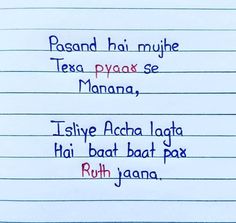 Pasand hai mujhe
Tera pyaar se
Manana,
Isliye Accha lagta
Hai baat baat par
Ruth jaana.